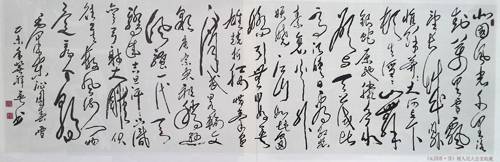 北国风光千里冰
封万里雪飘
望长城内外
惟余莽莽大河上下
顿失滔滔山舞
银蛇原驰蜡象
欲与天公试比
高须晴日看红装
素裹分外
妖娆江山如此多
娇引无数英
雄竞折腰惜秦皇
汉武略输文
采唐宗宋祖稍逊
风骚一代天
骄成吉思汗只识
弯弓射大雕俱
往矣数风流人物
还看今朝
毛泽东沁园春雪